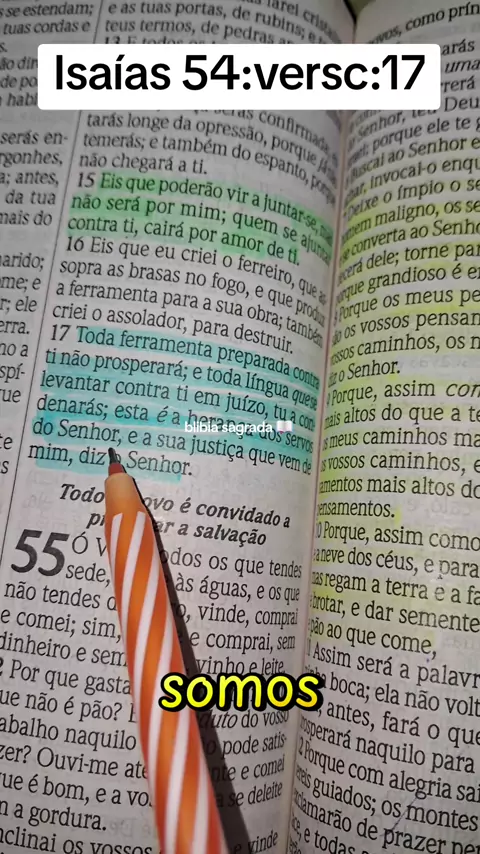 Isaías 54:versc:17
se estendam;
tuas cordas e
e as tuas portas, de rubins; e to
teus termos, de pedras
tarás longe da opressão, porque já
temerás; e também do espanto, porque
não chegará a ti.
15 Eis que poderão vir a juntar-se, mas
não será por mim; quem se ajuntar
contra ti, cairá por amor de ti.
16 Eis que eu criei o ferreiro, que as-
sopra as brasas no fogo, e que produz
a ferramenta para a sua obra; também
criei o assolador, para destruir.
17 Toda ferramenta preparada contra
ti não prosperará; e toda língua que se
levantar contra ti em juízo, tu a con-
denarás; esta é a dos servos
do Senhor, e a sua justiça que vem de
mim, diz o Senhor.
bliblia sagrada
Todo povo é convidado a
a salvação
55 Ó todos os que tendes
sede, às águas, e os que
não tendes vinde, comprai
e comei; sim, e comprai, sem
dinheiro e sem vinho e leite.
2 Por que gasta
que não é pão? E
do vosso
abalho naquilo pode satis-
zer? Ouvi-me ate e comei
que é bom, e a vos a se deleite
m a gordura.
nclinai os vossos e vinde
serás en-
rgonhes,
a; antes,
da tua
mais do
arido;
ome; e
r; ele
erra.
como prín
Senhor, teu Deus
porque ele te g
Buscai ao Senhor e
invocai-o enqu
Deixe o ímpio o se
maligno, os se
se converta ao Senho
dele; torne par
porque grandioso é e
Porque os meus pe
os vossos pensam
vossos caminhos, os m
diz o Senhor.
Porque, assim com
mais altos do que a te
meus caminhos ma
vossos caminhos, e
mais altos do
pensamentos.
10 Porque, assim como
e a neve dos céus, e para
mas regam a terra e a fa
brotar, e dar semente
pão ao que come,
11 Assim será a palavr
boca; ela não volt
antes, fará o que
prosperará naquilo para
12 Porque com alegria sai
guiados; os montes
de prazer per
e todas
somos